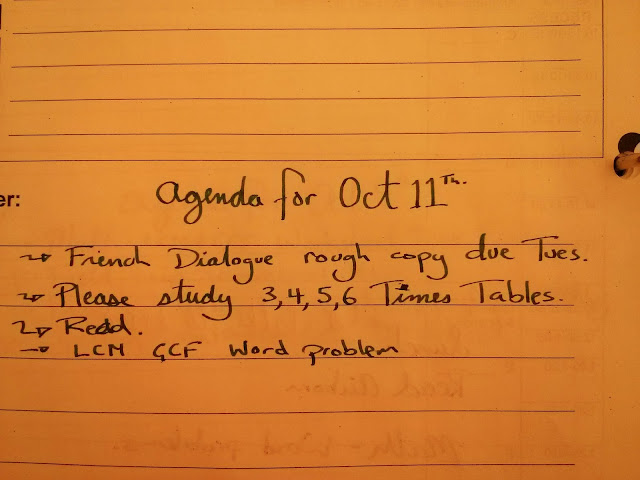 er:
agenda for Oct 11Th.
→ French Dialogue rough copy due Tues.
→ Please study 3,4,5,6 Times Tables.
→ Read.
→ LCM GCF Word problem